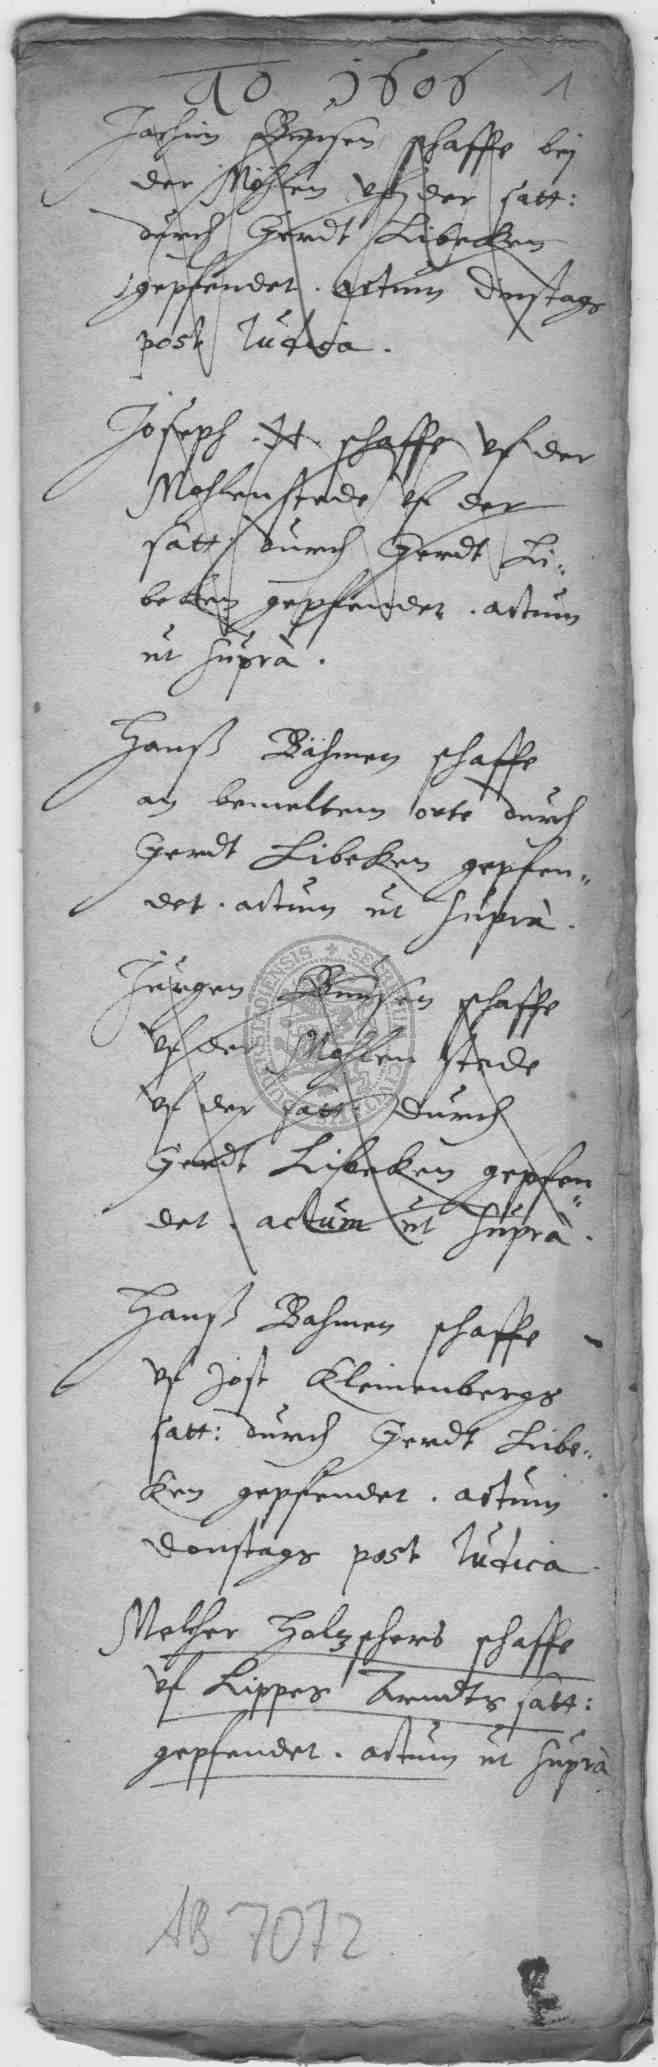 Ao 1606 1
Jochim Bensen schaffe bej
der Mohlen uf der satt:
durch Gerdt Libeken
gepfendet. actum dinstags
post Iudica.
Joseph schaffe uf der
Mohlenstede uf der
satt durch Gerdt Li-
beken gepfendet. actum
ut suprà.
Hanß Bähmen schaffe
an bemeltem orte durch
Gerdt Libeken gepfen-
det. actum ut suprà.
Jurgen schaffe
uf der Mohlen stede
uf der satt: durch
Gerdt Libeken gepfen-
det. actum ut suprà.
Hanß Bahmen schaffe
uf Jost Kleinenbergs
satt: durch Gerdt Libe-
ken gepfendet. actum
donstags post Iudica
Melcher Holzschers schaffe
uf Lippes Arndts satt:
gepfendet. actum ut suprà
AB 7072